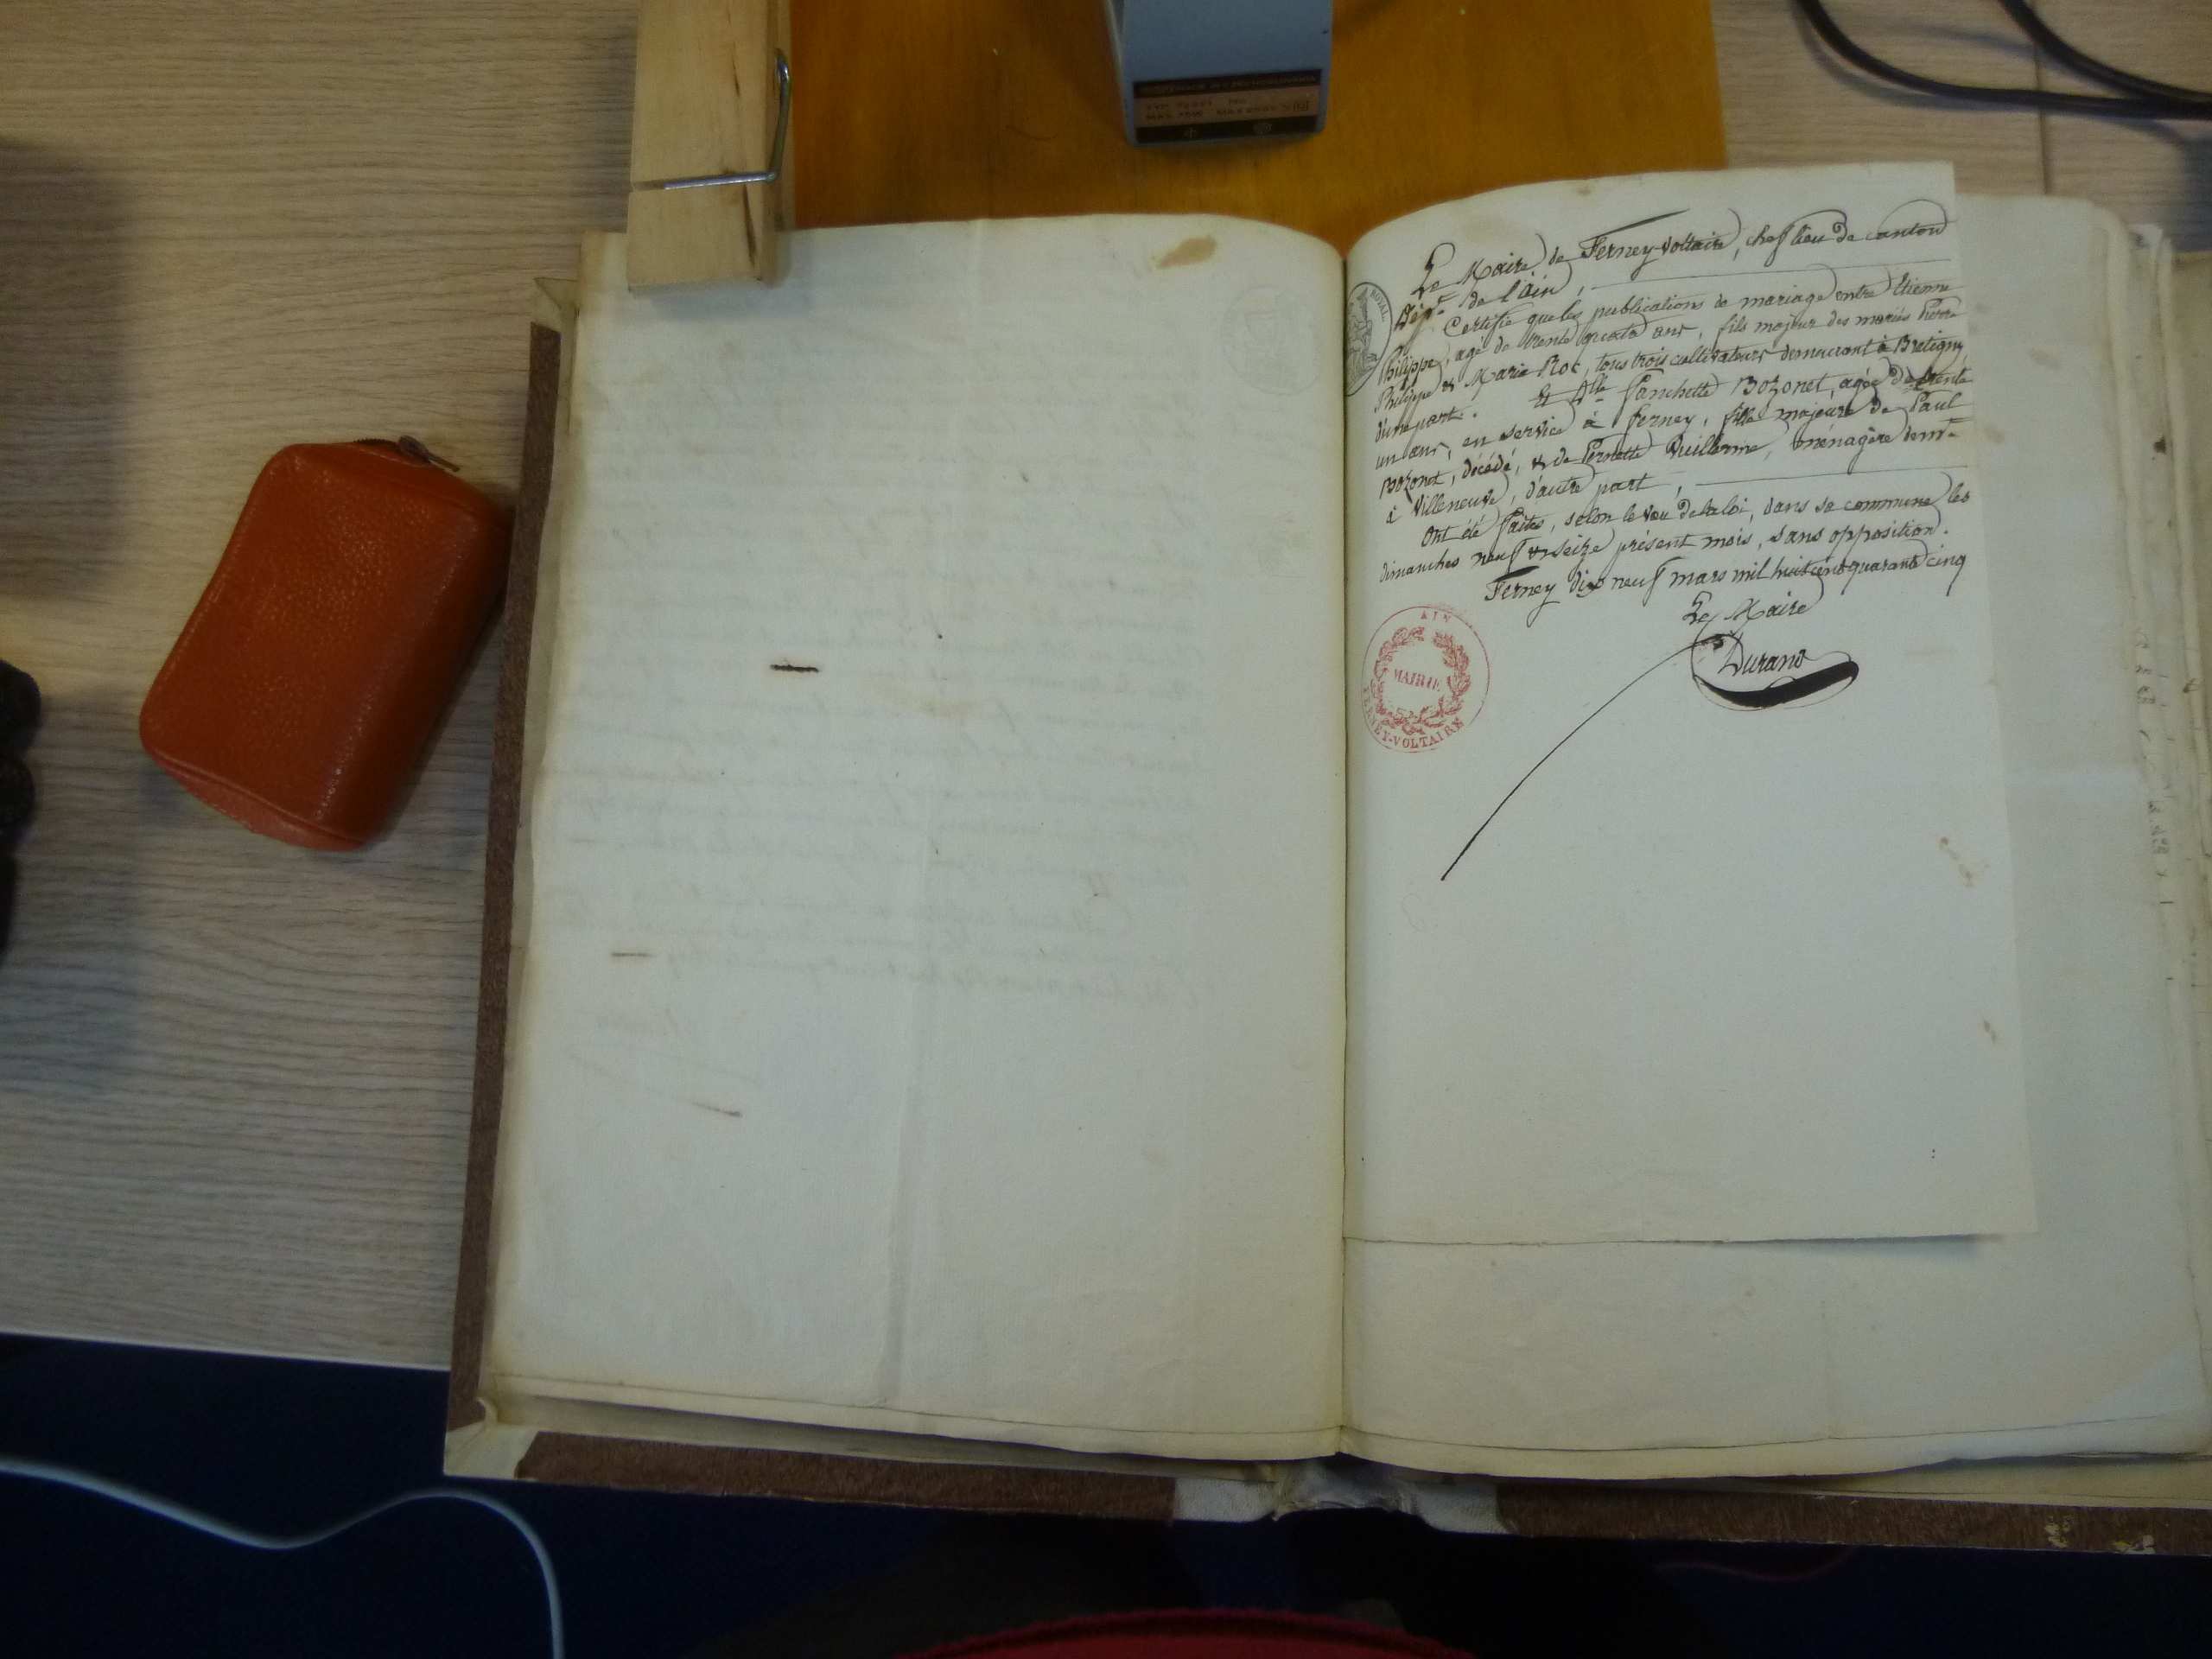 Le Maire de Ferney-Voltaire, chef lieu de canton
Dépt de l'Ain,
Certifie que les publications de mariage entre Etienne
Philippe, agé de trente quatre ans, fils majeur des mariés Pierre
Philippe & Marie Roc, tous trois cultivateurs demeurant à Bretigny
d'une part. Et Dlle Fanchette Bozonet, agée de trente
un ans, en service à ferney, fille majeure de Paul
Bozonet, décédé, & de Pernette Vuillerme, ménagère demt
à Villeneuve, d'autre part,
Ont été faites, selon le vœu de la loi, dans sa commune les
dimanches neuf & seize présent mois, sans opposition.
Ferney dix neuf mars mil huit cent quarante cinq
Le Maire
Durand
ROYAL
AIN
MAIRIE
FERNEY-VOLTAIRE